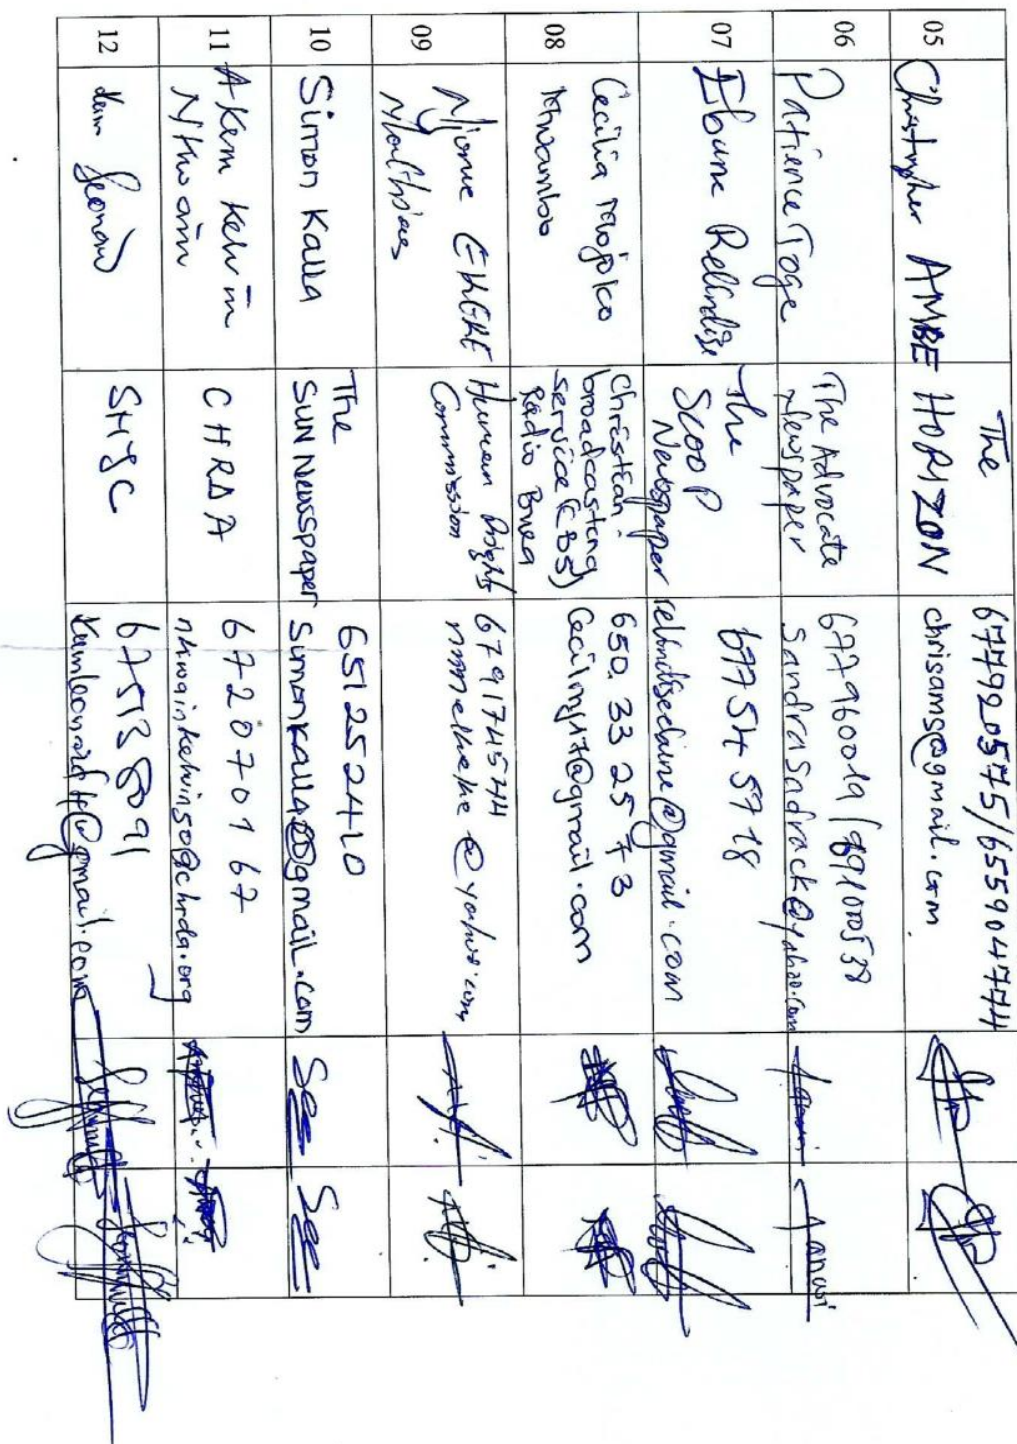 05
Christopher AMBE
The
HORIZON
677920575/655904744
chrisams@gmail.com
06
Patience Toge
The Advocate
Newspaper
677960019/
sandrasadrack@yahoo.com
07
Ebune Relindise
The
SCOOP
Newspaper
677545718
@gmail.com
08
Cecilia
Christian
broadcasting
service (CBS)
Radio Buea
650.33 25 73
@gmail.com
09
Njome
Human Rights
Commission
679174544
@yahoo.com
10
Simon Kalla
The
SUN Newspaper
651252410
Simonkalla@gmail.com
11
Akem Kelvin
Nkwain
CHRDA
672070167
nkwainkelvin50@chrda.org
12
SHYC
675138091
@gmail.com